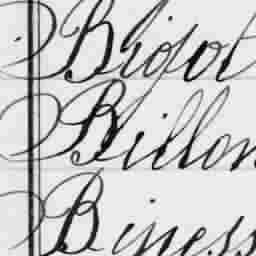 Bigot
Billon
Biness